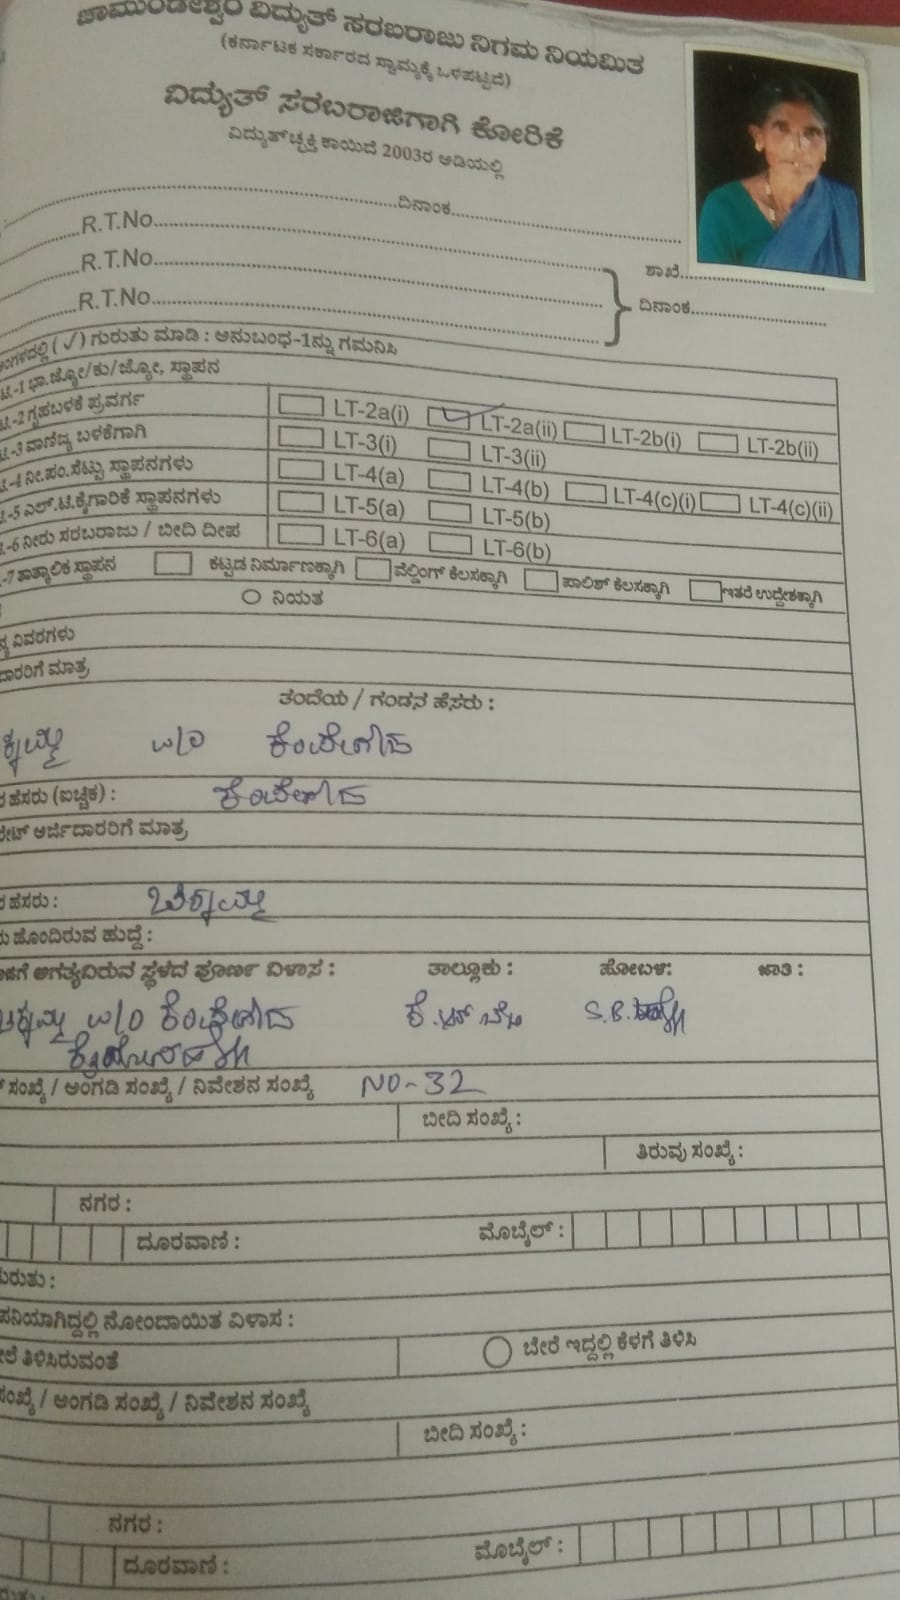 ಚಾಮುಂಡೇಶ್ವರಿ ವಿದ್ಯುತ್ ಸರಬರಾಜು ನಿಗಮ ನಿಯಮಿತ
(ಕರ್ನಾಟಕ ಸರ್ಕಾರದ ಸ್ವಾಮ್ಯಕ್ಕೆ ಒಳಪಟ್ಟಿದೆ)
ವಿದ್ಯುತ್ ಸರಬರಾಜಿಗಾಗಿ ಕೋರಿಕೆ
ವಿದ್ಯುತ್‌ಚ್ಛಕ್ತಿ ಕಾಯಿದೆ 2003ರ ಅಡಿಯಲ್ಲಿ
ದಿನಾಂಕ
R.T.No
R.T.No
ಶಾಖೆ
R.T.No
ದಿನಾಂಕ
(✓) ಗುರುತು ಮಾಡಿ : ಅನುಬಂಧ-1ನ್ನು ಗಮನಿಸಿ
-1 ಭಾ.ಜ್ಯೋ/ಕು/ಜ್ಯೋ, ಸ್ಥಾಪನ
-2 ಗೃಹಬಳಕೆ ಪ್ರವರ್ಗ LT-2a(i) LT-2a(ii) LT-2b(i) LT-2b(ii)
-3 ವಾಣಿಜ್ಯ ಬಳಕೆಗಾಗಿ LT-3(i) LT-3(ii)
-4 ನೀ.ಪಂ.ಸೆಟ್ಟು ಸ್ಥಾಪನಗಳು LT-4(a) LT-4(b) LT-4(c)(i) LT-4(c)(ii)
-5 ಎಲ್.ಟಿ.ಕೈಗಾರಿಕೆ ಸ್ಥಾಪನಗಳು LT-5(a) LT-5(b)
-6 ನೀರು ಸರಬರಾಜು / ಬೀದಿ ದೀಪ LT-6(a) LT-6(b)
-7 ತಾತ್ಕಾಲಿಕ ಸ್ಥಾಪನ ಕಟ್ಟಡ ನಿರ್ಮಾಣಕ್ಕಾಗಿ ವೆಲ್ಡಿಂಗ್ ಕೆಲಸಕ್ಕಾಗಿ ಪಾಲಿಶ್ ಕೆಲಸಕ್ಕಾಗಿ ಇತರೆ ಉದ್ದೇಶಕ್ಕಾಗಿ
ನಿಯತ
ವಿವರಗಳು
ದಾರರಿಗೆ ಮಾತ್ರ
ತಂದೆಯ / ಗಂಡನ ಹೆಸರು :
w/o ಕೆಂಪೇಗೌಡ
ಹೆಸರು (ಐಚ್ಛಿಕ) : ಕೆಂಪೇಗೌಡ
ಅರ್ಜಿದಾರರಿಗೆ ಮಾತ್ರ
ಹೆಸರು :
ಹೊಂದಿರುವ ಹುದ್ದೆ :
ಅಗತ್ಯವಿರುವ ಸ್ಥಳದ ಪೂರ್ಣ ವಿಳಾಸ : ತಾಲ್ಲೂಕು : ಹೋಬಳಿ: ಜಾತಿ :
w/o ಕೆಂಪೇಗೌಡ
ಸಂಖ್ಯೆ / ಅಂಗಡಿ ಸಂಖ್ಯೆ / ನಿವೇಶನ ಸಂಖ್ಯೆ NO-32
ಬೀದಿ ಸಂಖ್ಯೆ :
ತಿರುವು ಸಂಖ್ಯೆ :
ನಗರ :
ದೂರವಾಣಿ : ಮೊಬೈಲ್ :
ಗುರುತು :
ಪನಿಯಾಗಿದ್ದಲ್ಲಿ ನೋಂದಾಯಿತ ವಿಳಾಸ :
ತಿಳಿಸಿರುವಂತೆ ಬೇರೆ ಇದ್ದಲ್ಲಿ ಕೆಳಗೆ ತಿಳಿಸಿ
ಸಂಖ್ಯೆ / ಅಂಗಡಿ ಸಂಖ್ಯೆ / ನಿವೇಶನ ಸಂಖ್ಯೆ
ಬೀದಿ ಸಂಖ್ಯೆ :
ನಗರ :
ದೂರವಾಣಿ : ಮೊಬೈಲ್ :